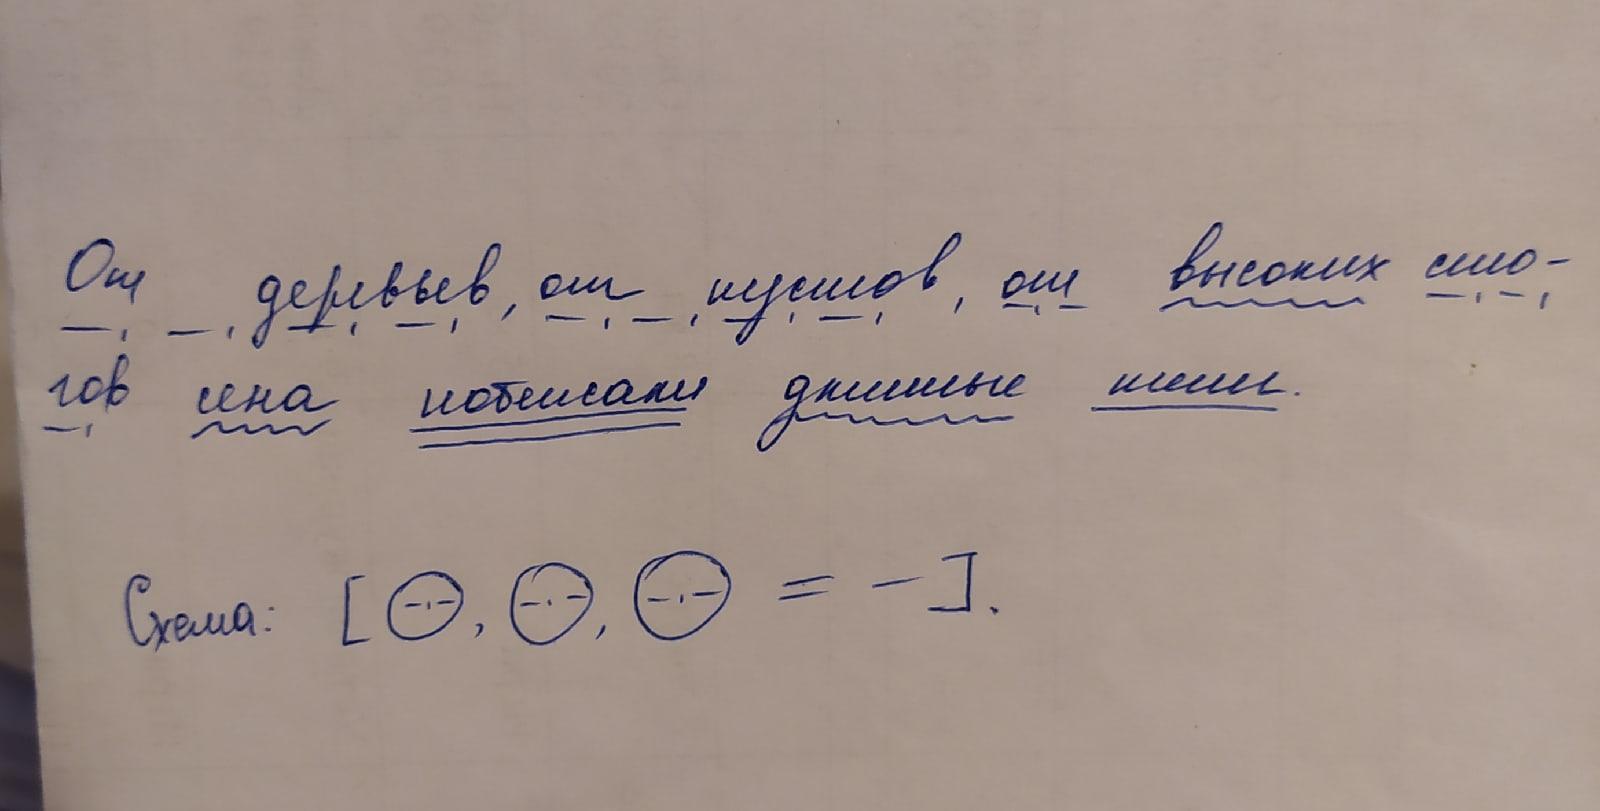 От деревьев, от кустов, от высоких сто-
гов сена побежали длинные тени.
Схема: [ -·-, -·-, -·- = - ].